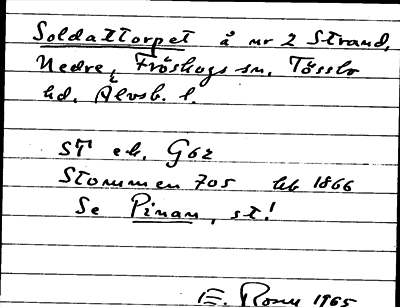 Soldattorpet å nr 2 Strand,
Nedre, Fröskogs sn. Tössbo
hd. Älvsb. l.
ST ek. G62
Stommen 705 hb 1866
Se Pinan, st!
E. 1965